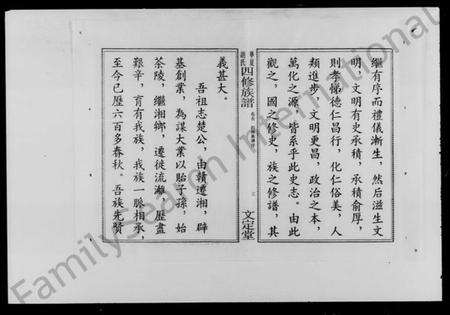 繼有序而禮儀漸生，然后滋生文
明，文明有史承積，承積俞厚，
則孝悌德仁昌行，化仁俗美，人
類進步，文明更昌，政治之本，
萬化之源，皆系乎此史志。由此
觀之，國之修史，族之修譜，其
四修族譜
文定堂
義甚大。
吾祖志楚公，由贛遷湘，辟
基創業，為謀大業以貽子孫，始
茶陵，繼湘鄉，遷徙流離，歷盡
艱辛，育有我族，我族一脈相承，
至今已歷六百多春秋。吾族先賢
FamilySearch International